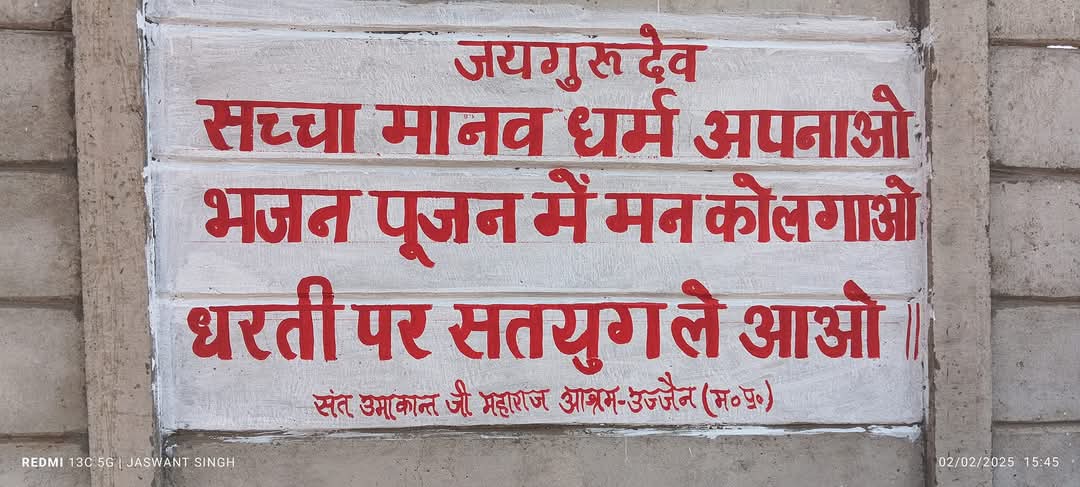 जयगुरू देव
सच्चा मानव धर्म अपनाओ
भजन पूजन में मन को लगाओ
धरती पर सतयुग ले आओ ॥
संत उमाकान्त जी महाराज आश्रम-उज्जैन (म॰प्र॰)
REDMI 13C 5G | JASWANT SINGH
02/02/2025 15:45